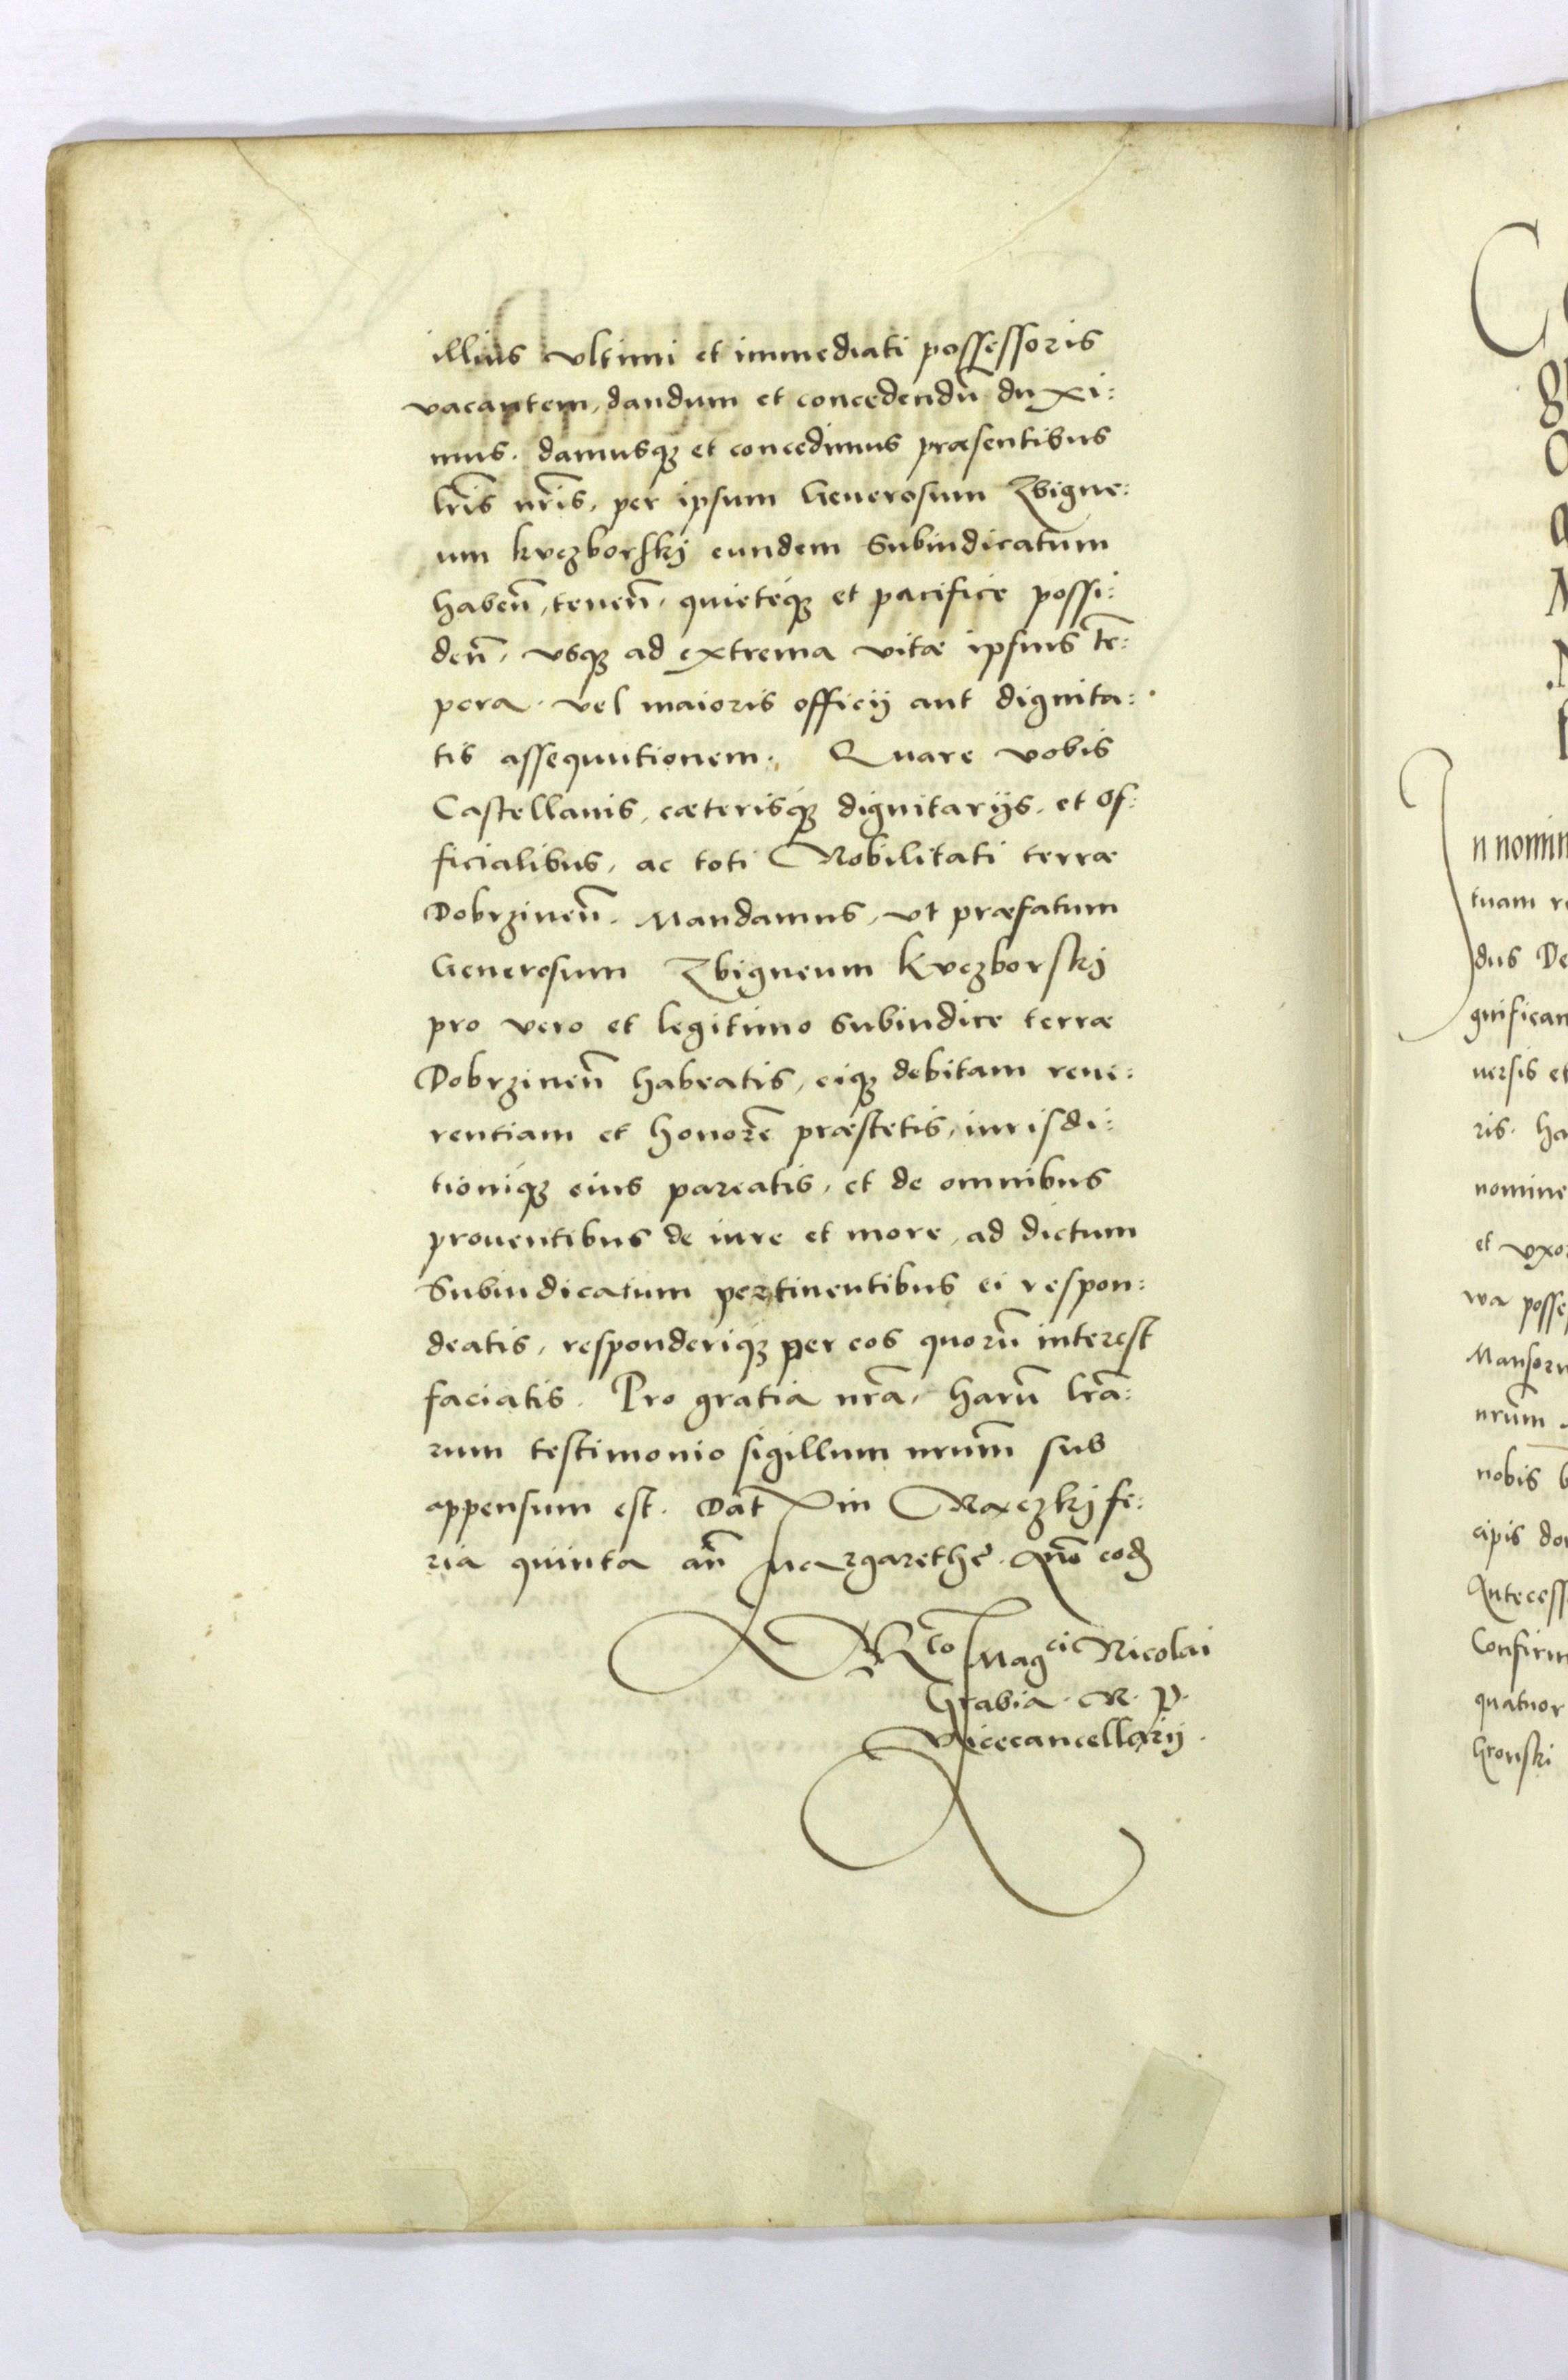 illius vltimi et immediati possessoris
vacantem, dandum et concedendū duxi:
mus. damusqꝫ et concedimus præsentibus
lr̄is nr̄is, per ipsum Generosum Zbigne:
um kvczborskj eundem Subiudicatum
habeñ, teneñ, quietéqꝫ et pacifice possi:
deñ, vsqꝫ ad extrema vitæ ipsius tē:
pora. vel maioris officij aut dignita:
tis assequutionem. Quare vobis
Castellanis, cæterisqꝫ dignitarijs, et of:
ficialibus, ac toti Nobilitati terræ
Dobrzineñ. Mandamus, vt præfatum
Generosum Zbigneum kvczborskj
pro vero et legitimo Subiudice terræ
Dobrzineñ habeatis, eiqꝫ debitam reue:
rentiam et honorē præstetis, iurisdi:
tioniqꝫ eius pareatis, et de omnibus
prouentibus de iure et more, ad dictum
Subiudicatum pertinentibus ei respon:
deatis, responderiqꝫ per eos quorū interest
faciatis. Pro gratia nr̄a, harū lr̄a:
rum testimonio sigillum nr̄um sub
appensum est. Dat̄ in fe:
ria quinta añ Margarethę. Año eod̄
Rto Magci Nicolai
Grabia. R. P.
Vicecancellarij.
C
n nomin
tuam r
dus De
gnifican
uersis et
ris. ha
nomine
et vxo
wa posse
Mansoru
nr̄um
nobis b
cipis do
Antecess
Confirm
quatuor
Gronski